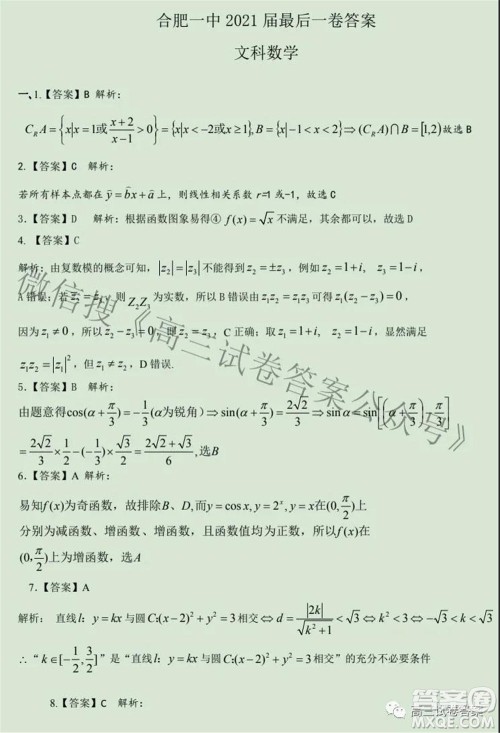 合肥一中 2021 届最后一卷答案
文科数学
一、1.【答案】B 解析：
C_R A={x|x=1或 (x+2)/(x-1)>0}={x|x<-2或x≥1},B={x|-1<x<2}⇒(C_R A)∩B=[1,2)故选 B
2.【答案】C 解析：
若所有样本点都在 ŷ=b̂x+â 上，则线性相关系数 r=1 或-1，故选 C
3.【答案】D 解析：根据函数图象易得④ f(x)=√x 不满足，其余都可以，故选 D
4.【答案】C
解析：由复数模的概念可知，|z₂|=|z₃|不能得到 z₂=±z₃，例如 z₂=1+i, z₃=1-i，
A 错误；若 则 Z₂Z₃ 为实数，所以 B 错误由 z₁z₂=z₁z₃ 可得 z₁(z₂-z₃)=0，
因为 z₁≠0，所以 z₂-z₃=0，即 z₂=z₃，C 正确；取 z₁=1+i, z₂=1-i，显然满足
z₁z₂=|z₁|²，但 z₁≠z₂，D 错误.
5.【答案】B 解析：
由题意得cos(α+π/3)=-1/3(α为锐角)⇒sin(α+π/3)=2√2/3⇒sinα=sin[(α+π/3)-π/3]
=2√2/3×1/2-(-1/3)×√3/2=(2√2+√3)/6,选B
6.【答案】A 解析：
易知f(x)为奇函数，故排除B、D,而y=cosx,y=2ˣ,y=x在(0,π/2)上
分别为减函数、增函数、增函数，且函数值均为正数，所以f(x)在
(0,π/2)上为增函数，选A
7.【答案】A
解析： 直线l：y=kx与圆C:(x-2)²+y²=3相交⇔d=|2k|/√(k²+1)<√3⇔k²<3⇔-√3<k<√3
∴“k∈[-1/2,3/2]”是“直线l：y=kx与圆C:(x-2)²+y²=3相交”的充分不必要条件
8.【答案】C 解析：
微信搜《高三试卷答案公众号》
高三试卷答案
答案圈
MXQE.COM